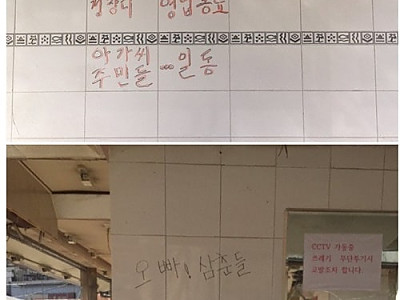 영업용도
아가씨
주민들 ... 일동
오빠! 삼춘들
CCTV 가동중
쓰레기 무단투기시
고발조치 합니다